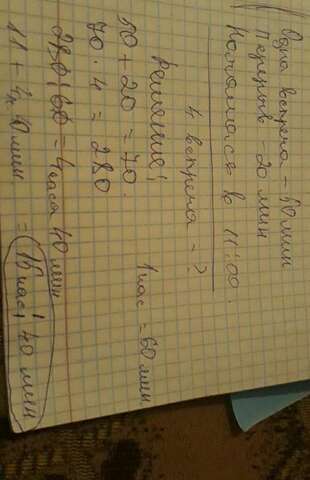 Одна встреча – 50 мин
Перерыв – 20 мин
Началась в 11:00.
4 встреча – ?
Решение:
1 час = 60 мин.
50 + 20 = 70.
70 · 4 = 280
280 : 60 = 4 часа 40 мин
11 + 4ч 40 мин. = 15 час; 40 мин